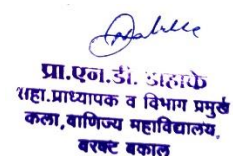 प्रा.एन.डी. डहाके
सहा.प्राध्यापक व विभाग प्रमुख
कला,वाणिज्य महाविद्यालय,
बरबट बकाल